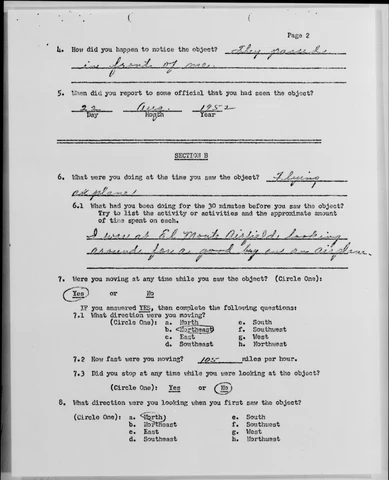 Page 2
4. How did you happen to notice the object? They passed
in front of me.
5. When did you report to some official that you had seen the object?
22 Aug. 1952
Day Month Year
SECTION B
6. What were you doing at the time you saw the object? Flying
airplane
6.1 What had you been doing for the 30 minutes before you saw the object?
Try to list the activity or activities and the approximate amount
of time spent on each.
I was at El Monte Airfield looking
around for a good buy on an airplane.
7. Were you moving at any time while you saw the object? (Circle One):
Yes or No
IF you answered YES, then complete the following questions:
7.1 What direction were you moving?
(Circle One): a. North e. South
b. Northeast f. Southwest
c. East g. West
d. Southeast h. Northwest
7.2 How fast were you moving? 105 miles per hour.
7.3 Did you stop at any time while you were looking at the object?
(Circle One): Yes or No
8. What direction were you looking when you first saw the object?
(Circle One): a. North e. South
b. Northeast f. Southwest
c. East g. West
d. Southeast h. Northwest